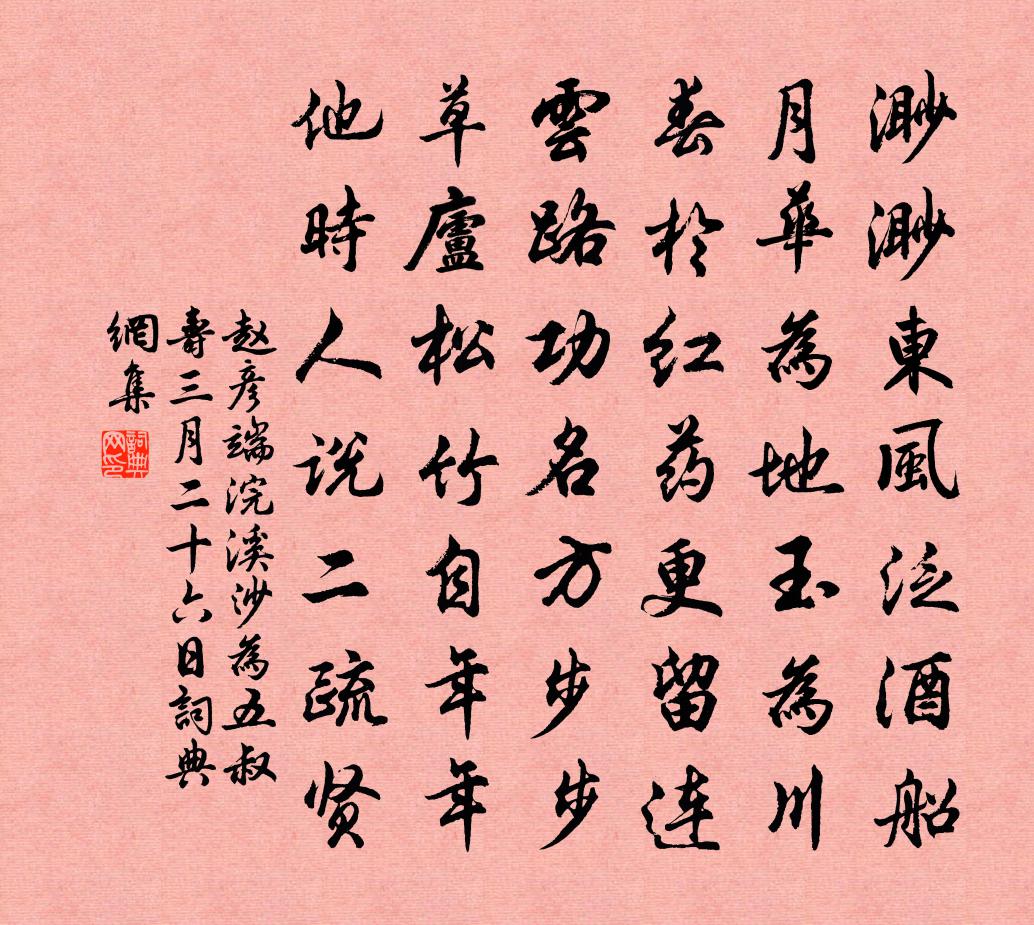 渺渺東風泛酒船
月華為地玉為川
春於红药更留连
雲路功名方步步
草廬松竹自年年
他時人说二疏贤
赵彦端浣溪沙為五叔
壽三月二十六日詞典
網集
詞典网印